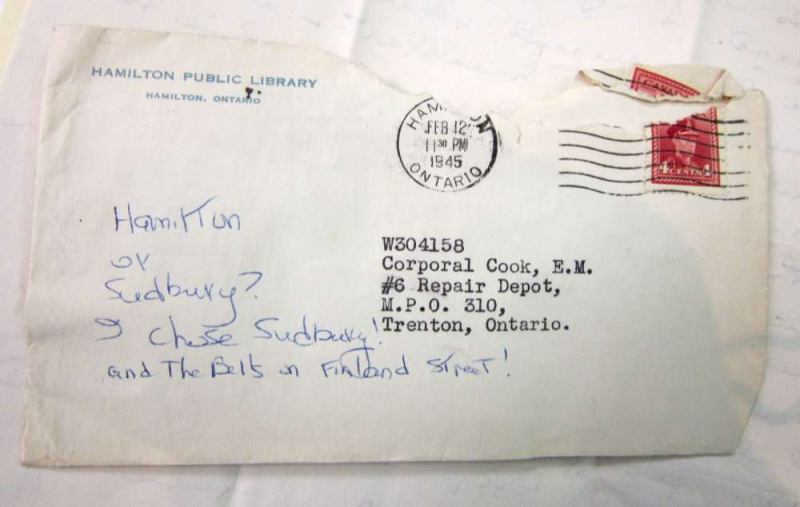 HAMILTON PUBLIC LIBRARY
HAMILTON, ONTARIO
CANADA
HAMILTON
FEB 12
11 30 PM
1945
ONTARIO
4 CENTS 4
W304158
Corporal Cook, E.M.
#6 Repair Depot,
M.P.O. 310,
Trenton, Ontario.
Hamilton
or
Sudbury?
I chose Sudbury!
and The Bells on Finland Street!